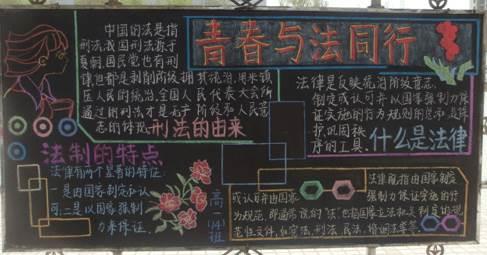 青春与法同行
中国的法是指
刑法我国刑法源于
夏朝国民党也有刑
律但都是剥削阶级拥其统治,用来镇
压人民的统治,全国人民代表大会所
通过的刑法才是无产阶级和人民意
志的体现
刑法的由来
法律是反映统治阶级意志,
制定或认可并以国家强制力保
证实施的行为规则的总和,是
护巩固秩
序的工具.
什么是法律
法制的特点
法律有两个显著的特征.
一是由国家制定和认
可,二是以国家强制
力来保证.
高一
(4)班
法律既指由国家制定
或认可并由国家强制力保证实施的行
为规范,即通常说的"法"也指国家立法机关制定的规
范性文件,如宪法,刑法,民法,婚姻法等等